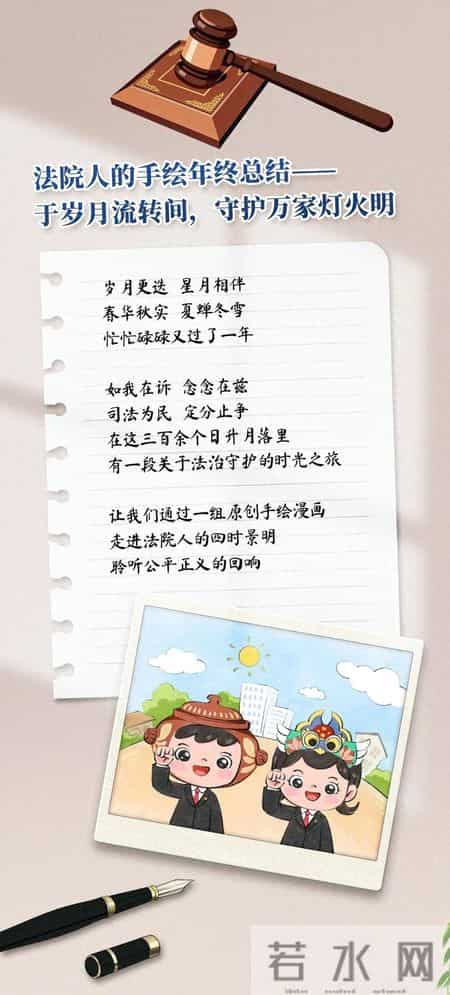 法院人的手绘年终总结——
于岁月流转间，守护万家灯火明
岁月更迭 星月相伴
春华秋实 夏蝉冬雪
忙忙碌碌又过了一年
如我在诉 念念在兹
司法为民 定分止争
在这三百余个日升月落里
有一段关于法治守护的时光之旅
让我们通过一组原创手绘漫画
走进法院人的四时景明
聆听公平正义的回响
若水网